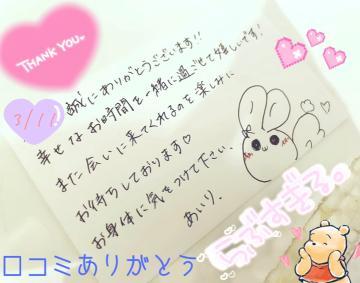 THANK YOU
3/11
誠にありがとうございます!!
幸せなお時間を一緒に過ごせて嬉しいです!
また会いに来てくれるのを楽しみに
お待ちしております♡
お身体に気をつけて下さい.
あいり.
らぶすぎる。
口コミありがとう